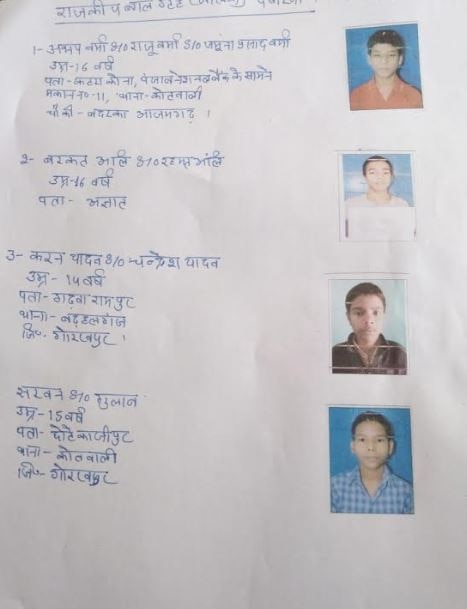 राजकीय बाल गृह (बालक)
1- अभय वर्मा S/o राजू वर्मा S/o जमुना प्रसाद वर्मी
उम्र-16 वर्ष
पता- कटरा कोना, पंजाब नेशनल बैंक के सामने
मकान नं०-11, थाना- कोतवाली
चौकी- बदरका आजमगढ़ ।
2- बरकत अलि S/o रहमत अलि
उम्र-16 वर्ष
पता - अज्ञात
3- करन यादव S/o चन्द्रेश यादव
उम्र - 14 वर्ष
पता- गढ़वा रामपुर
थाना- बड़हलगंज
जि०- गोरखपुर ।
सरवन S/o
उम्र-15 वर्ष
पता- छोटेकाजीपुर
थाना- कोतवाली
जि०- गोरखपुर